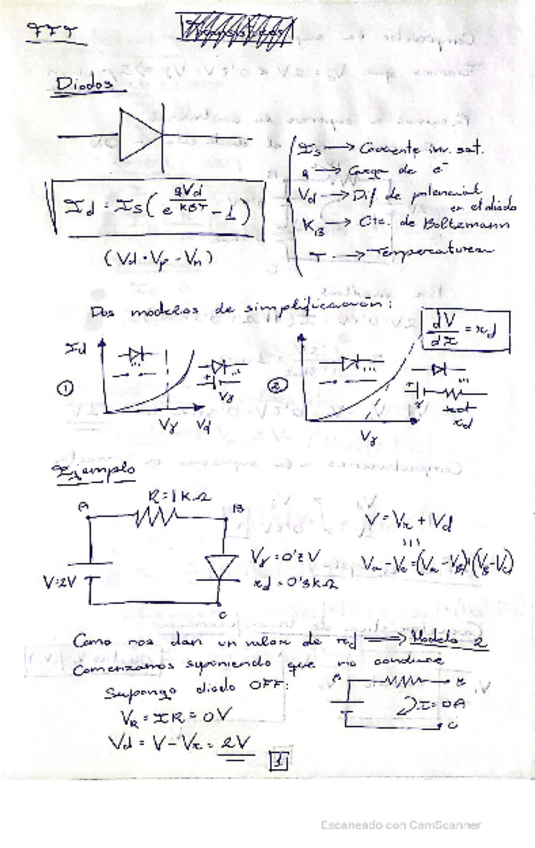 TTT
Diodos
Is → Corriente inv. sat.
q → Carga de e⁻
Vd → Dif de potencial en el diodo
K_B → Cte. de Boltzmann
T → Temperatura
Id = Is ( e^(qVd/KBT) - 1 )
(Vd = Vp - Vn)
Dos modelos de simplificación:
dV/dI = rd
Id
① Vγ Vd
Vγ
② Vγ
rd
Ejemplo
R = 1 kΩ
A B
V = 2V
Vγ = 0'8V
rd = 0'3kΩ
C
V = Vr + Vd
Va - Vc = (Va - VB) + (VB - Vc)
Como nos dan un valor de rd → Modelo 2
Comenzamos suponiendo que no conduce
Supongo diodo OFF:
VR = IR = 0V
Vd = V - Vr = 2V
A B
I = 0A
C
1
Escaneado con CamScanner